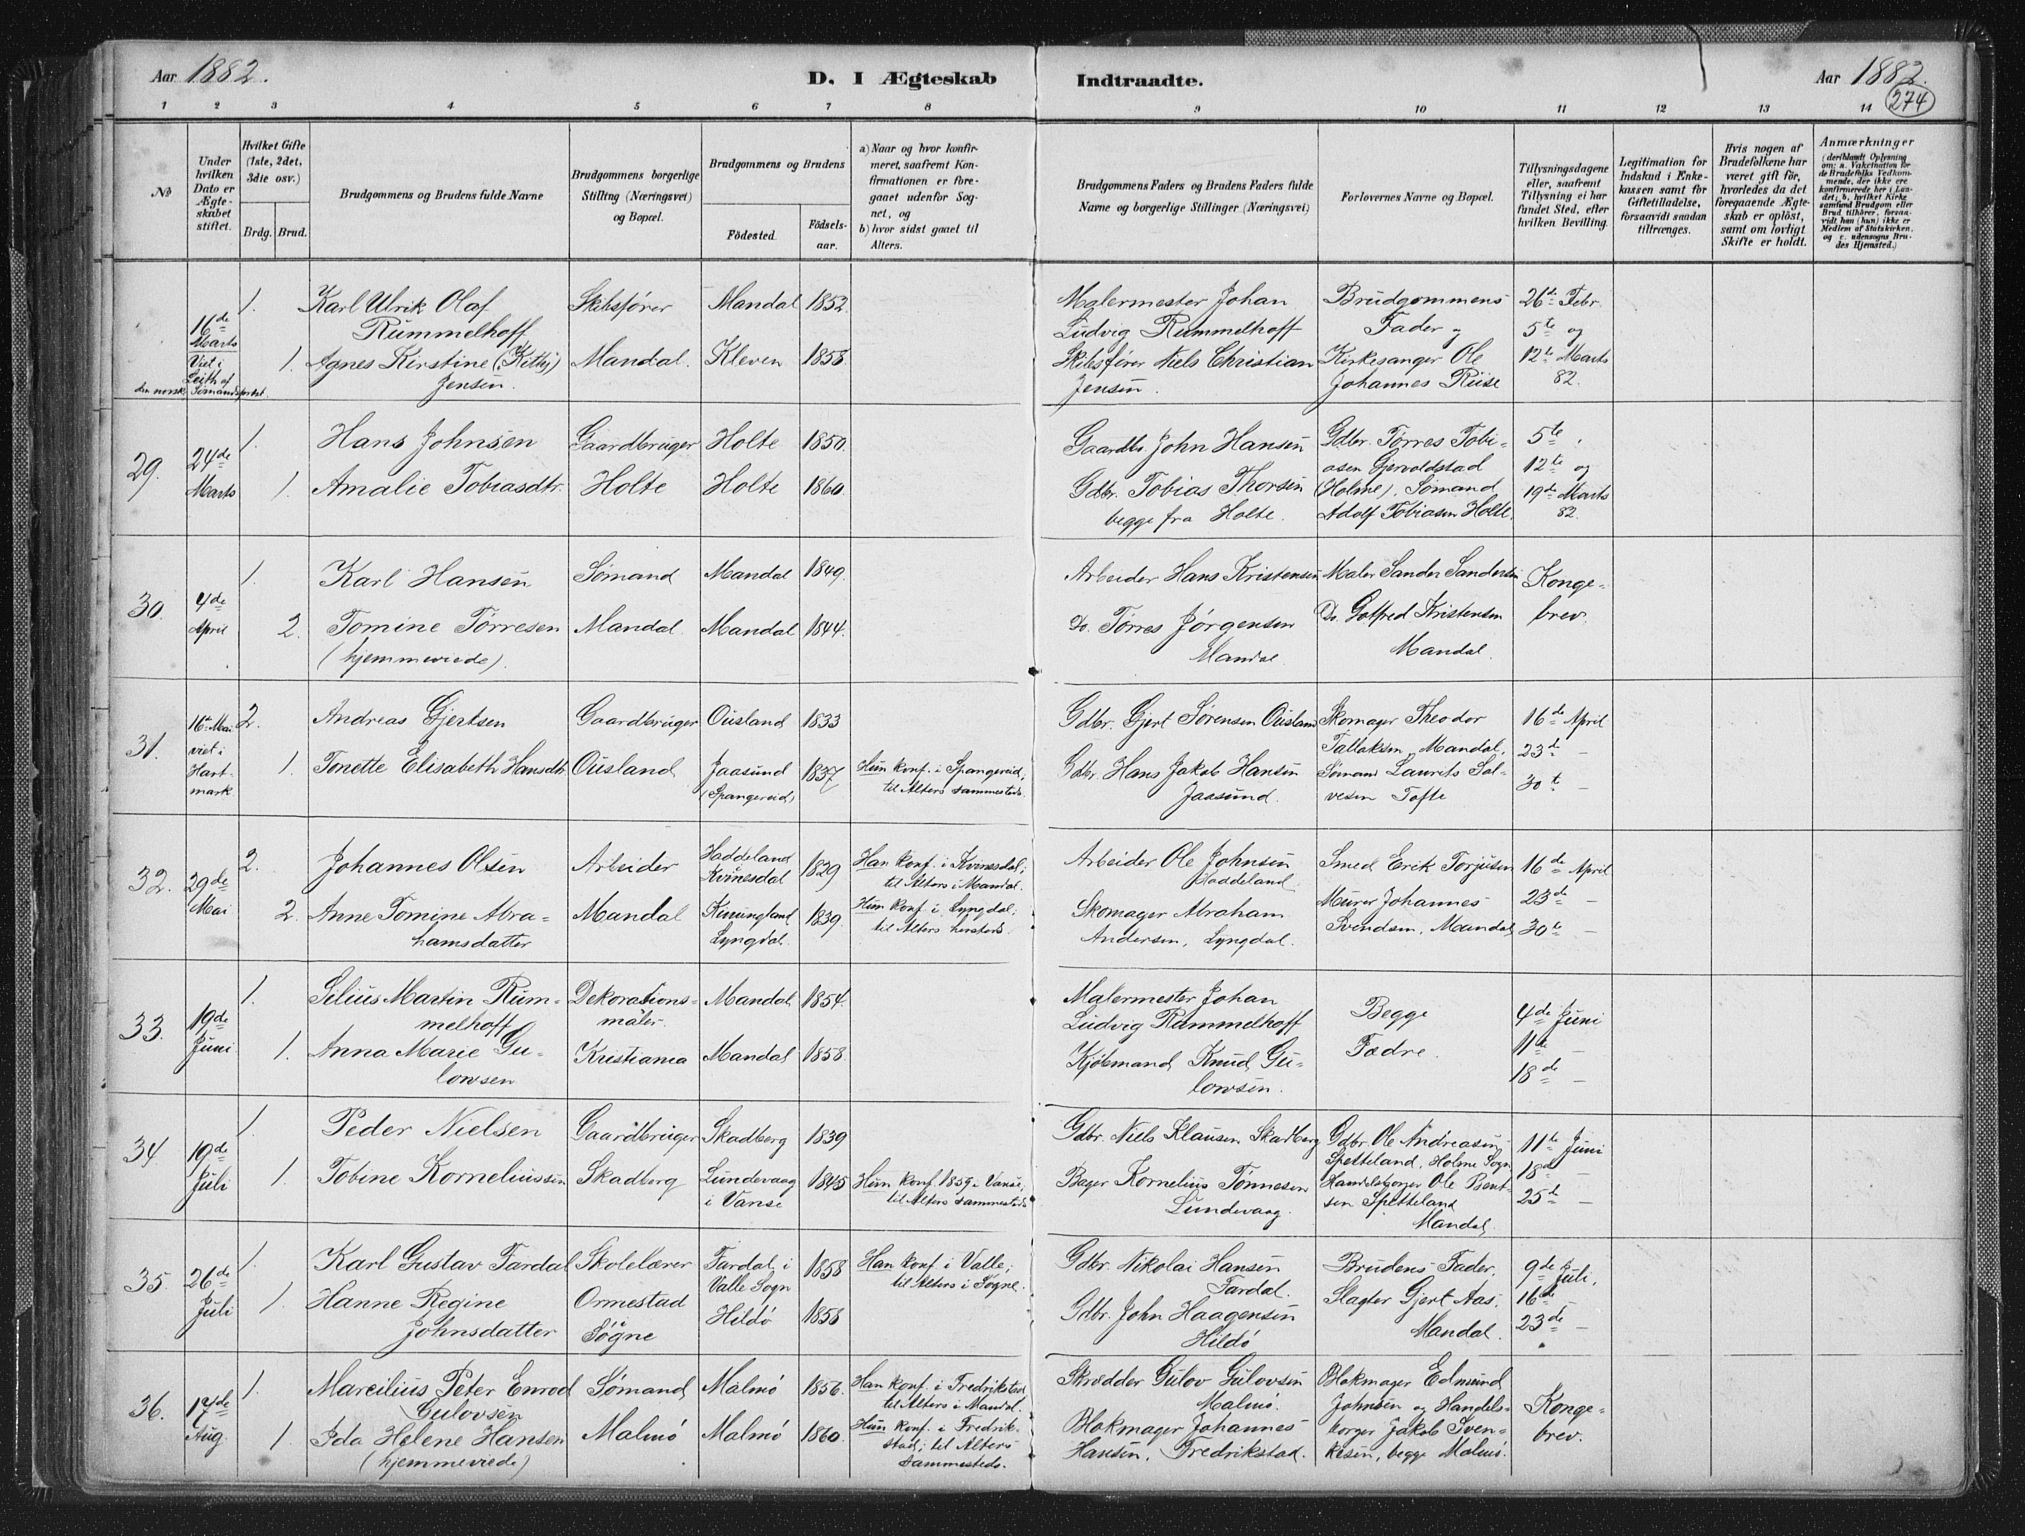 Aar 1882.
D. I Ægteskab Indtraadte.
Aar 1882.
274
1 2 3 4 5 6 7 8 9 10 11 12 13 14
No
Under hvilken Dato er Ægteskabet stiftet.
Hvilket Gifte (1ste, 2det, 3die osv.)
Brdg. Brud.
Brudgommens og Brudens fulde Navne
Brudgommens borgerlige Stilling (Næringsvei) og Bopæl.
Brudgommens og Brudens
Födested. Födselsaar.
a) Naar og hvor konfirmeret, saafremt Konfirmationen er foregaaet udenfor Sognet, og
b) hvor sidst gaaet til Alters.
Brudgommens Faders og Brudens Faders fulde Navne og borgerlige Stillinger (Næringsvei)
Forlovernes Navne og Bopæl.
Tillysningsdagene eller, saafremt Tillysning ei har fundet Sted, efter hvilken Bevilling.
Legitimation for Indskud i Enkekassen samt for Giftetilladelse, forsaavidt saadan tiltrænges.
Hvis nogen af Brudefolkene har været gift för, hvorledes da det foregaaende Ægteskab er oplöst, samt om lovligt Skifte er holdt.
Anmærkninger
(deriblandt Oplysning om: a. Vakcination for de Brudefolks Vedkommende, der ikke ere konfirmerede her i Landet; b. hvilket Kirkesamfund Brudgom eller Brud tilhörer, forsaavidt han (hun) ikke er Medlem af Statskirken, og c. udensogns Brudes Hjemsted.)
16de Marts
Viet i Leith af
den norske Sømandsprest.
1. Karl Ulrik Olaf Rummelhoff
Skibsfører Mandal 1852
1. Agnes Kirstine (Kitty) Jensen.
Mandal. Kleven 1858.
Malermester Johan Ludvig Rummelhoff
Skibsfører Niels Christian Jensen.
Brudgommens Fader og
Kirkesanger Ole Johannes Riise
26de Febr.
5te og
12te Marts
82.
29. 24de Marts
1. Hans Johnsen Gaardbruger Holte 1850.
1. Amalie Tobiasdtr. Holte Holte 1860.
Gaardbr. John Hansen
Gdbr. Tobias Thorsen
begge fra Holte.
Gdbr. Tørres Tobiasen Gjervoldstad
(Holme). Sømand
Adolf Tobiasen Holte.
5te
12te og
19de Marts
82.
30. 4de April
1. Karl Hansen Sømand Mandal 1849.
2. Tomine Tørresen Mandal Mandal 1844.
(hjemmeviede).
Arbeider Hans Kristensen
Do. Tørres Jørgensen
Mandal
Maler Sander Sandersen
Do. Gotfred Kristensen
Mandal.
Kongebrev.
31. 16de Mai
viet i Hartmark.
2. Andreas Gjertsen Gaardbruger Ousland 1833
1. Tonette Elisabeth Hansdtr Ousland Jaasund (Spangereid) 1837
Hun konf. i Spangereid,
til Alters sammesteds.
Gdbr. Gjert Sørensen Ousland
Gdbr. Hans Jakob Hansen
Jaasund.
Skomager Theodor
Tallaksen, Mandal.
Sømand Laurits Salvesen Tofte
16de April
23de –
30te –
32. 29de Mai
2. Johannes Olsen Arbeider Haddeland Kvinesdal 1829
2. Anne Tomine Abrahamsdatter Mandal Lyngdal. 1839.
Han konf. i Kvinesdal;
til Alters i Mandal.
Hun konf. i Lyngdal;
til Alters hersteds.
Arbeider Ole Johnsen
Haddeland.
Skomager Abraham
Andersen, Lyngdal.
Smed Erik Torjusen
Murer Johannes
Svendsen, Mandal
16de April
23de –
30te –
33. 19de Juni
1. Silius Martin Rummelhoff Dekorationsmaler Mandal 1854.
1. Anna Marie Gulowsen Kristiania Mandal 1858.
Malermester Johan
Ludvig Rummelhoff
Kjøbmand Knud Gulowsen.
Begge
Fædre.
4de Juni
11te –
18de –
34 19de Juli
1. Peder Nielsen Gaardbruger Skadberg 1839
1. Tobine Korneliussen Skadberg Lundevaag i Vanse 1845
Hun konf. 1859 i Vanse;
til Alters sammesteds
Gdbr. Niels Klausen Skadberg
Bager Kornelius Tønnesen
Lundevaag.
Gdbr. Ole Andreasen
Spetteland, Holme Sogn
Handelsborger Ole Bentsen Spetteland
Mandal.
11te Juni
18de –
25de –
35. 26de Juli
1. Karl Gustav Fardal Skolelærer Fardal i Valle Sogn 1858
1. Hanne Regine Johnsdatter
Ormestad Søgne
Hildø 1858
Han konf. i Valle;
til Alters i Søgne.
Gdbr. Nikolai Hansen
Fardal.
Gdbr. John Haagensen
Hildø
Brudens Fader.
Slagter Gjert Aas.
Mandal.
9de Juli.
16de –
23de –
36. 17de Aug.
1. Marcilius Peter Enrod Gulovsen Sømand Malmø 1856.
1 Ida Helene Hansen Malmø Malmø 1860.
(hjemmeviede)
Han konf. i Fredrikstad
til Alters i Mandal.
Hun konf. i Fredrikstad; til Alters
sammesteds.
Skrædder Gulov Gulovsen
Malmø.
Blokmager Johannes
Hansen, Fredrikstad.
Blokmager Edmund
Johnsen og Handelsborger Jakob Svenkesen, begge Malmø.
Kongebrev.